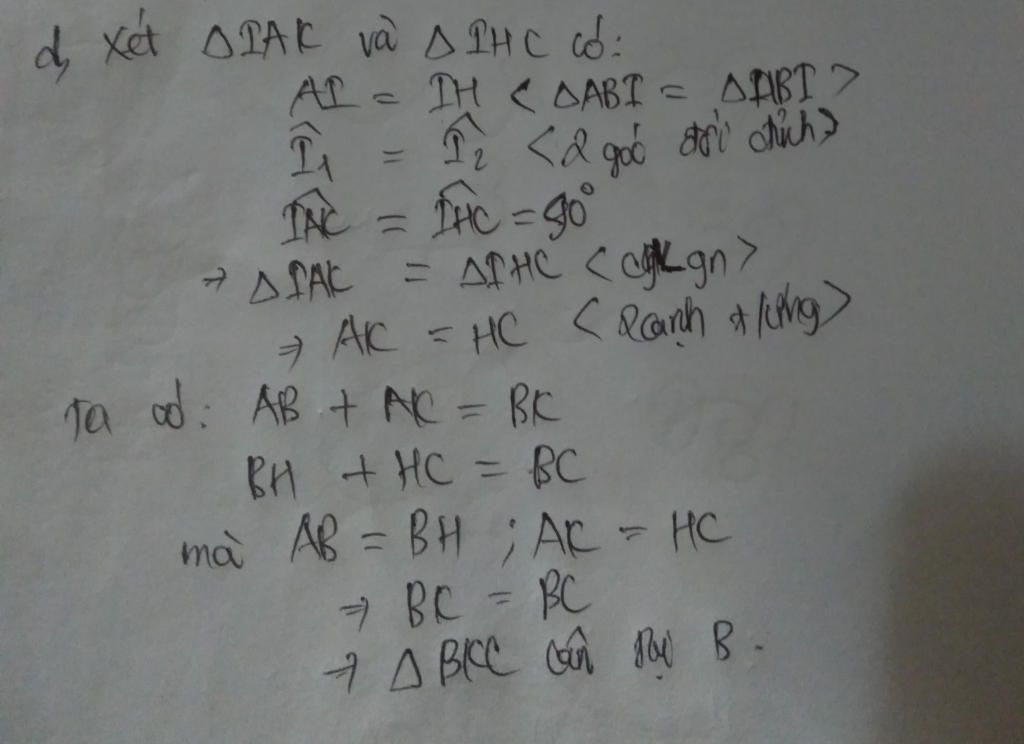 d, Xét ΔIAK và ΔIHC có:
AI = IH < ΔABI = ΔHBI >
Î₁ = Î₂ < 2 góc đối đỉnh >
IAK̂ = IHĈ = 90°
→ ΔIAK = ΔIHC < gn >
⇒ AK = HC < 2 cạnh t/ứng >
Ta có: AB + AK = BK
BH + HC = BC
mà AB = BH ; AK = HC
⇒ BK = BC
→ ΔBKC cân tại B.